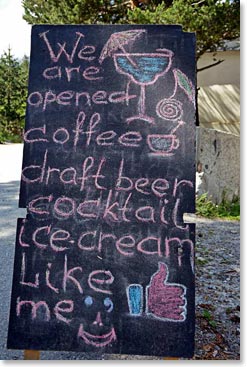 We
are
opened
coffee
draft beer
cocktail
ice-cream
Like
me